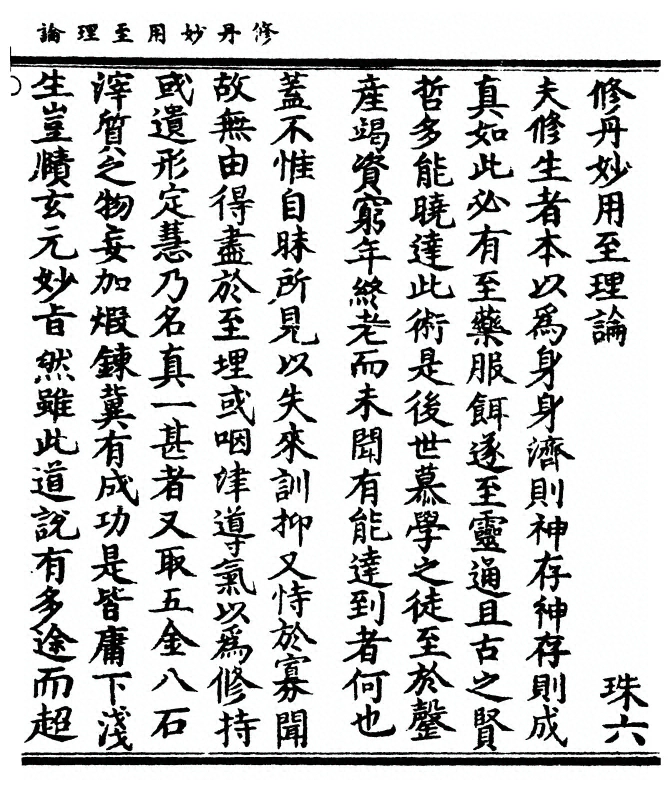 修丹妙用至理論
修丹妙用至理論
珠六
夫修生者本以爲身身濟則神存神存則成
真如此必有至藥服餌遂至靈通且古之賢
哲多能曉達此術是後世慕學之徒至於罄
產竭資窮年終老而未聞有能達到者何也
蓋不惟自昧所見以失來訓抑又恃於寡聞
故無由得盡於至理或咽津導氣以爲修持
或遺形定慧乃名真一甚者又取五金八石
滓質之物妄加煅鍊冀有成功是皆庸下淺
生豈賾玄元妙旨然雖此道說有多途而超